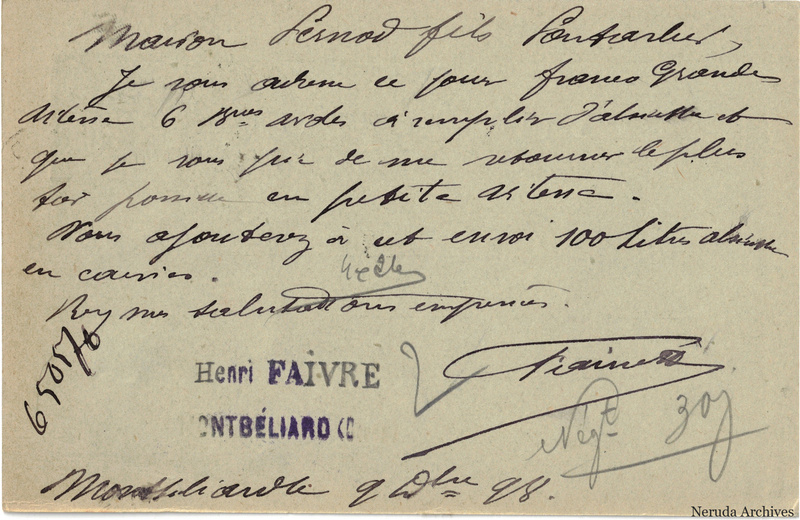 Maison Pernod fils Pontarlier,
Je vous adresse ce jour franco Grande
vitesse 6 vides à remplir d'absinthe et
que je vous prie de me retourner le plus
tôt possible en petite vitesse.
Vous ajouterez à cet envoi 100 litres absinthe
en caisses.
Rec mes salutations empressées.
65057
Henri FAIVRE
ONTBÉLIARD (D
Faivre
Négt
307
Montbéliard le 9 Xbre 98.
Neruda Archives